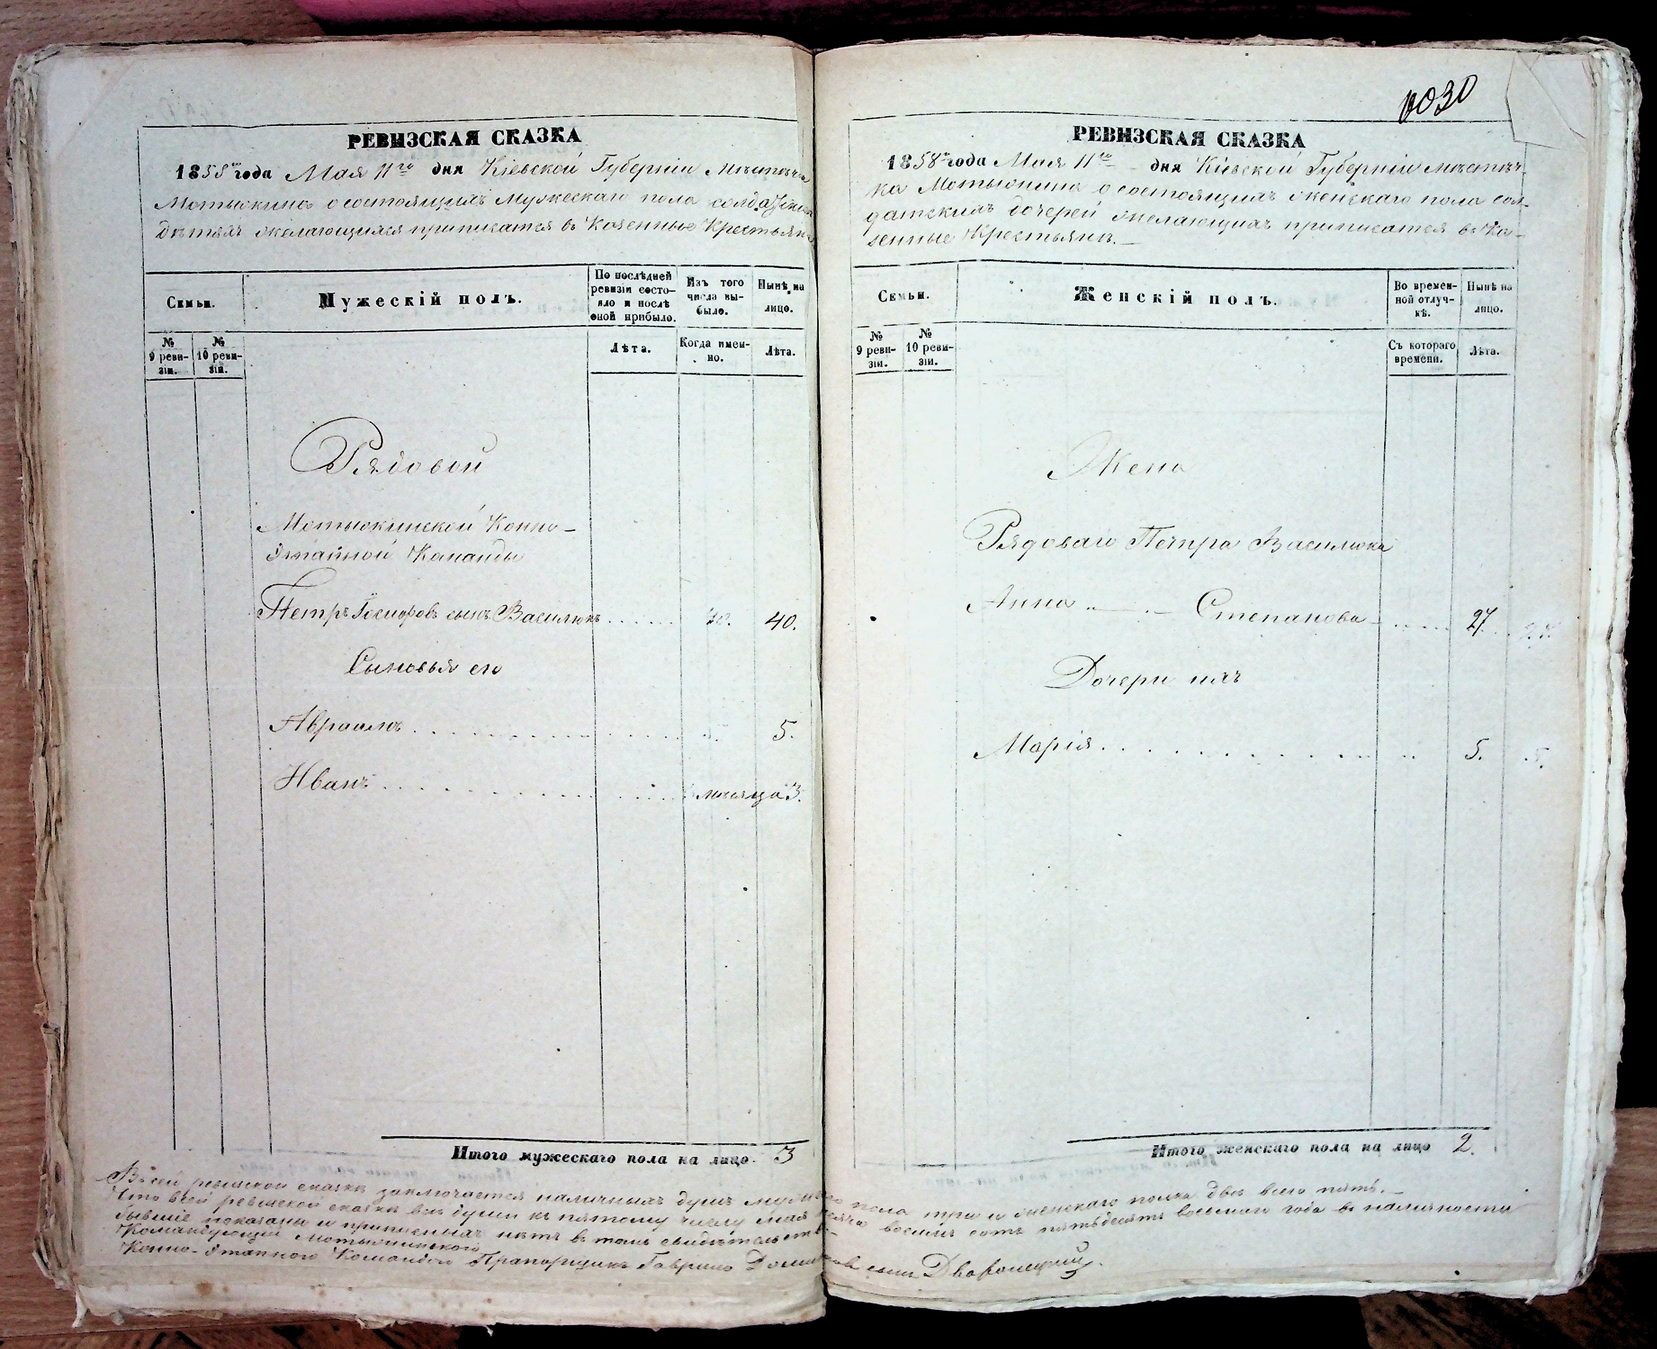 РЕВИЗСКАЯ СКАЗКА
1858го года Мая 11го дня Кіевской Губерніи Мѣстечка
Мотыжина о состоящихъ Мужескаго пола солдатскихъ
дѣтяхъ желающихся приписатся въ Казенные Крестьяне
Семьи.
Мужескій полъ.
По послѣдней ревизіи состояло и послѣ оной прибыло.
Изъ того числа выбыло.
Нынѣ на лицо.
№ 9 ревизіи.
№ 10 ревизіи.
Лѣта.
Когда именно.
Лѣта.
Рядовой
Мотыжинской Конно-
Этапной Команды
Петръ сынъ Василюкъ 40.
Сыновья его
Авраамъ 5.
Иванъ мѣсяца 3.
Итого мужескаго пола на лицо. 3
0030
РЕВИЗСКАЯ СКАЗКА
1858го года Мая 11го дня Кіевской Губерніи мѣстеч-
ка Мотыжина о состоящихъ женскаго пола сол-
датскихъ дочерей желающихъ приписатся въ Ка-
зенные Крестьяне.
Семьи.
Женскій полъ.
Во временной отлучкѣ.
Нынѣ на лицо.
№ 9 ревизіи.
№ 10 ревизіи.
Съ котораго времени.
Лѣта.
Жена
Рядоваго Петра Василюка
Анна Степанова 27.
Дочери ихъ
Марія 5.
Итого женскаго пола на лицо 2.
В сей ревизской сказкѣ заключается наличныхъ душъ мужескаго пола три и женскаго пола двѣ всего пять.
Что всей ревизской сказкѣ всѣ души къ пятому числу мая тысяча восемь сотъ пятьдесятъ восьмого года въ наличности
бывшіе показаны и прописныхъ нѣтъ в томъ свидѣтельствую
Командующій Мотыжинскою
Конно-Этапною Командою Прапорщикъ Гаврило сынъ